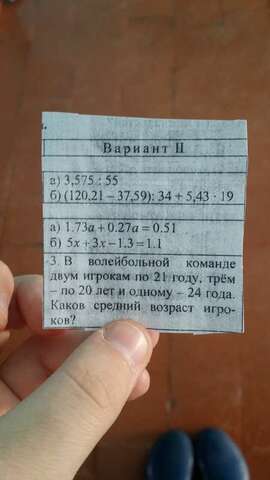 Вариант II
а) 3,575 : 55
б) (120,21 – 37,59): 34 + 5,43 · 19
а) 1.73a + 0.27a = 0.51
б) 5x + 3x – 1.3 = 1.1
3. В волейбольной команде
двум игрокам по 21 году, трём
– по 20 лет и одному – 24 года.
Каков средний возраст игро-
ков?